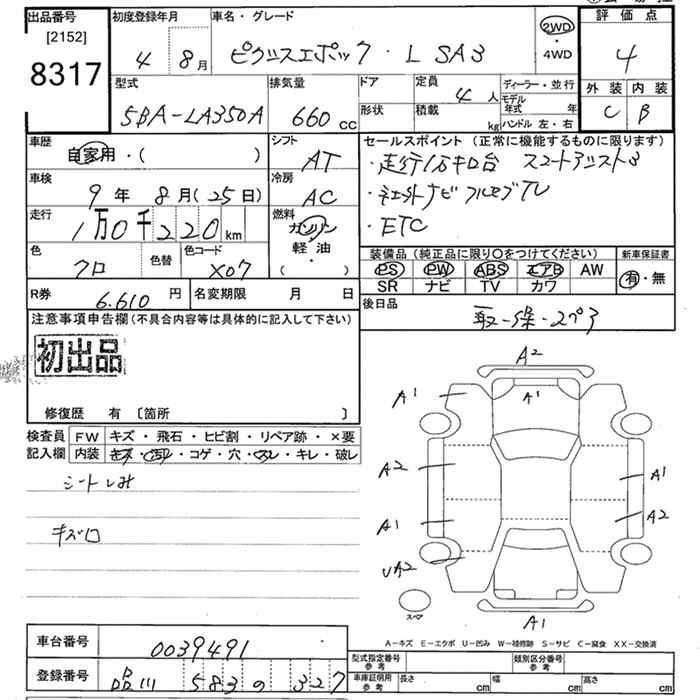 出品番号 初度登録年月 車名・グレード 評価点
[2152] 4 8月 ピクシスエポック・L SA3 2WD・4WD 4
8317
型式 排気量 ドア 定員 ディーラー・並行 外装 内装
5BA-LA350A 660 cc 4人 モデル年式 年 C B
形状 積載 kg ハンドル 左・右
車歴 シフト セールスポイント(正常に機能するものに限ります)
自家用・( ) AT ・走行1万キロ台 スマートアシスト3
車検 冷房 ・ネエット ナビ フルセグTV
9年 8月(25日) AC ・ETC
走行 燃料
1万0千220km ガソリン
軽油
( )
色 色替 色コード 装備品(純正品に限り〇をつけてください) 新車保証書
クロ X07 PS PW ABS エアB AW 有・無
SR ナビ TV カワ
R券 6.610円 名変期限 月 日 後日品
注意事項申告欄(不具合内容等は具体的に記入して下さい) 取-S保-スペア
初出品
修復歴 有 〔箇所 〕
検査員 FW キズ・飛石・ヒビ割・リペア跡・×要
記入欄 内装 キズ・汚れ・コゲ・穴・スレ・キレ・破レ
シートしみ
キズ口
A2
A1 A1
A2 A1
A1 A2
UA2
A1
スペア
A-キズ E-エクボ U-凹み W-補修跡 S-サビ C-腐食 XX-交換済
車台番号 0039491
型式指定番号 参考 類別区分番号 参考
登録番号 品川 583 の 327
車庫証明用 参考 長さ cm 幅 cm 高さ cm